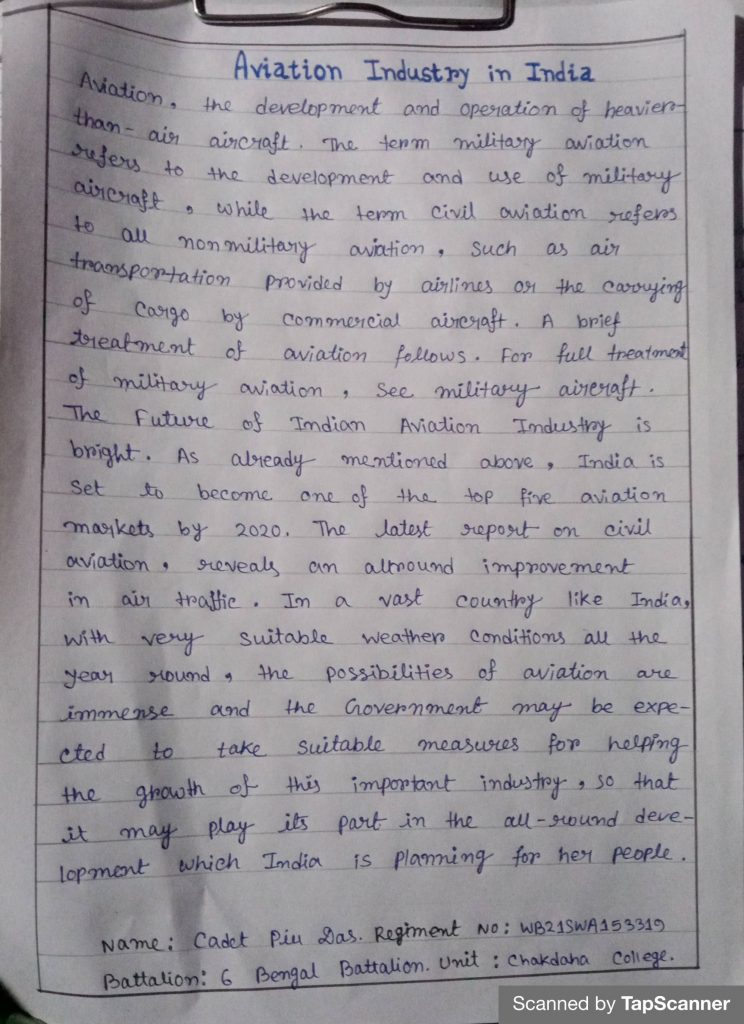 Aviation Industry in India
Aviation, the development and operation of heavier-
than-air aircraft. The term military aviation
refers to the development and use of military
aircraft, while the term civil aviation refers
to all nonmilitary aviation, such as air
transportation provided by airlines or the carrying
of cargo by commercial aircraft. A brief
treatment of aviation follows. For full treatment
of military aviation, see military aircraft.
The Future of Indian Aviation Industry is
bright. As already mentioned above, India is
set to become one of the top five aviation
markets by 2020. The latest report on civil
aviation, reveals an allround improvement
in air traffic. In a vast country like India,
with very suitable weather conditions all the
year round, the possibilities of aviation are
immense and the Government may be expe-
cted to take suitable measures for helping
the growth of this important industry, so that
it may play its part in the all-round deve-
lopment which India is planning for her people.
Name: Cadet Piu Das. Regiment No: WB21SWA153319
Battalion: 6 Bengal Battalion. Unit: Chakdaha College.
Scanned by TapScanner